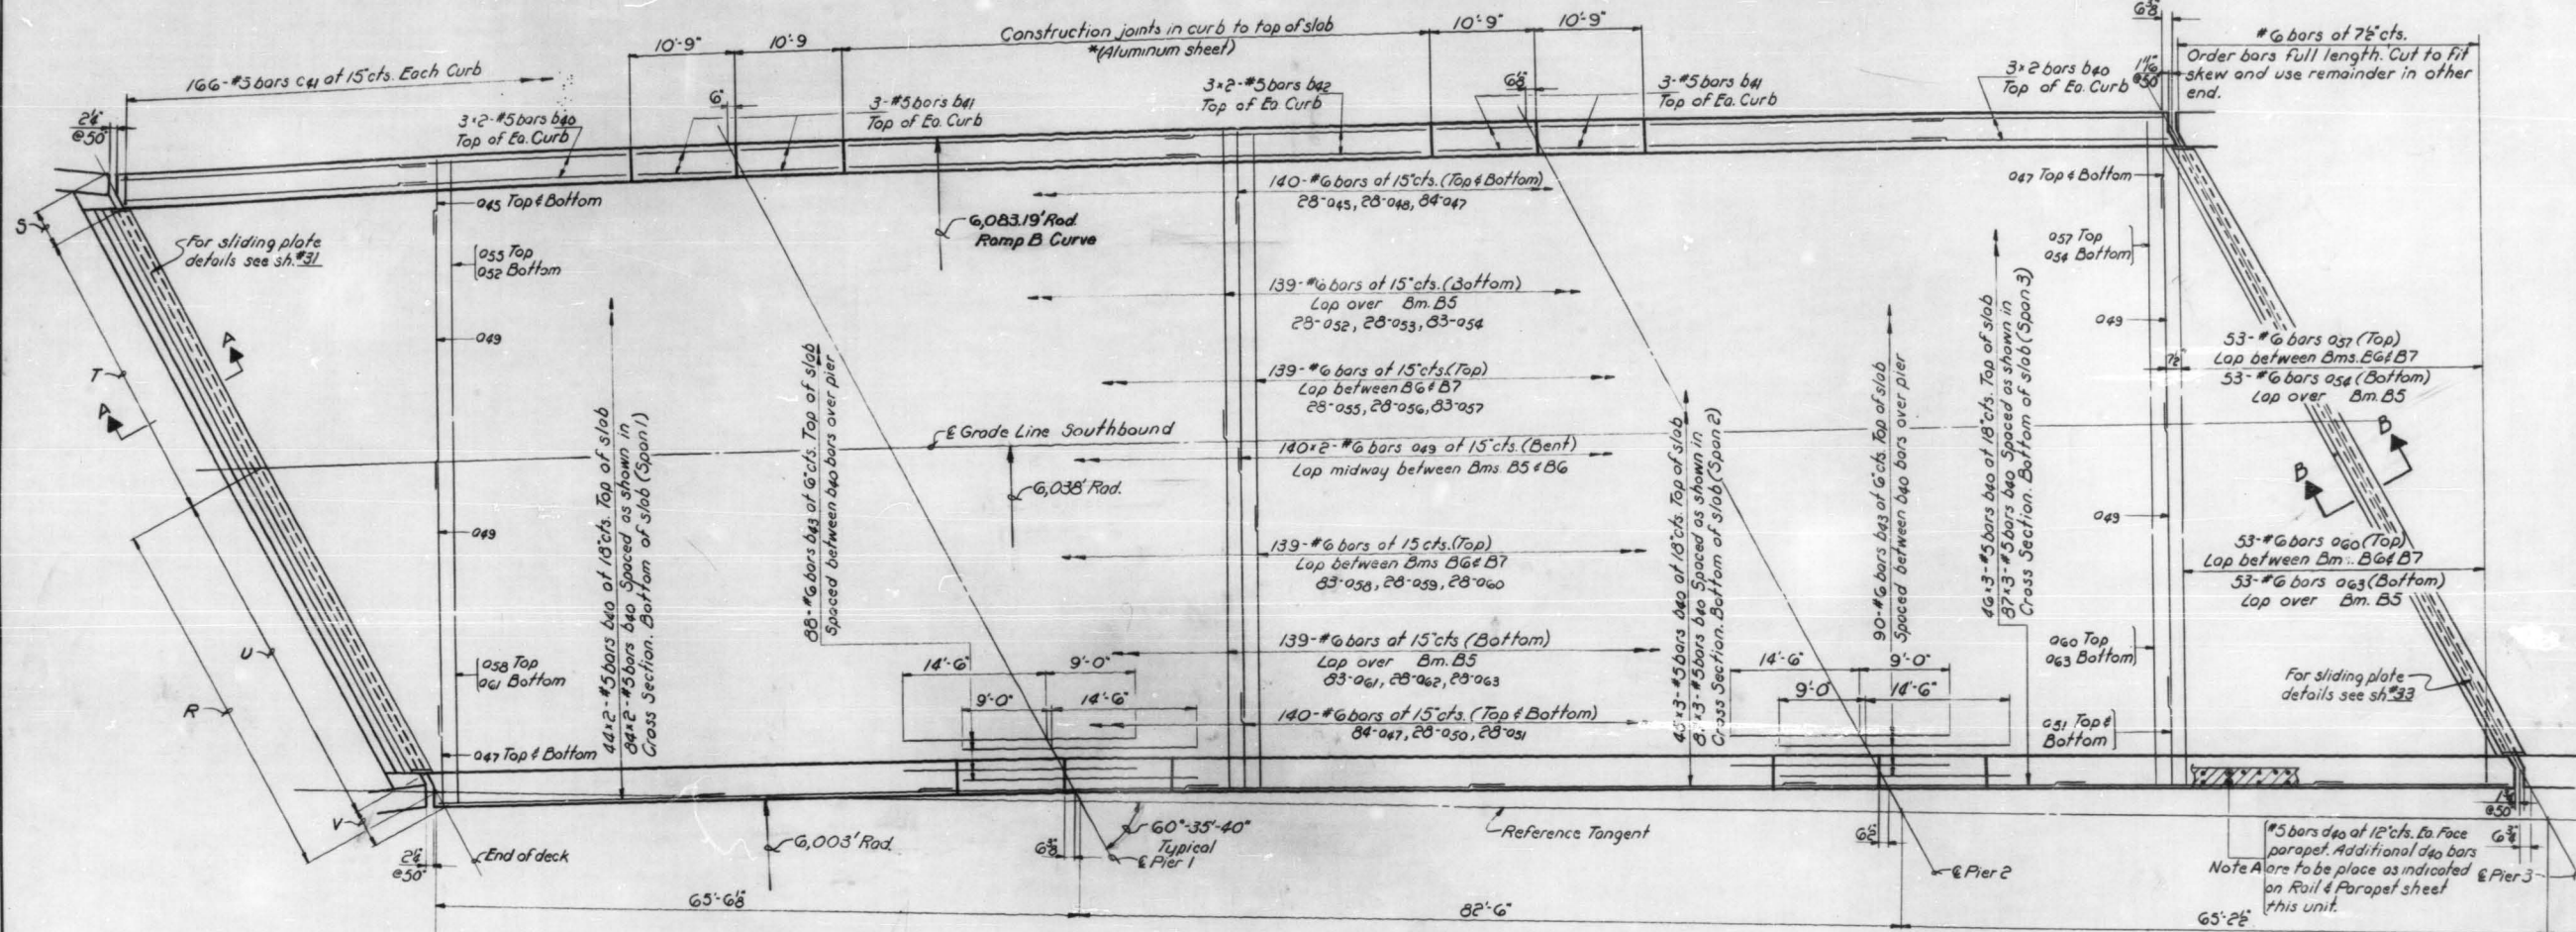 166-#5 bars c41 at 15"cts. Each Curb
10'-9"
10'-9
Construction joints in curb to top of slab
*(Aluminum sheet)
10'-9"
10'-9"
#6 bars at 7½"cts.
Order bars full length. Cut to fit
skew and use remainder in other
end.
2¼"
@50°
3×2-#5 bars b40
Top of Ea. Curb
6"
3-#5 bars b41
Top of Ea. Curb
3×2-#5 bars b42
Top of Ea. Curb
3-#5 bars b41
Top of Ea. Curb
3×2 bars b40
Top of Ea. Curb
S
For sliding plate
details see sh.#31
a45 Top & Bottom
a55 Top
a52 Bottom
a49
T
A
A
a49
a58 Top
a61 Bottom
U
R
a47 Top & Bottom
V
2¼"
@50°
End of deck
44×2-#5 bars b40 at 18"cts. Top of slab
84×2-#5 bars b40 Spaced as shown in
Cross Section. Bottom of slab (Span 1)
88-#6 bars b43 at 6"cts. Top of slab
Spaced between b40 bars over pier
6,083.19' Rad.
Ramp B Curve
℄ Grade Line Southbound
6,038' Rad.
6,003' Rad.
140-#6 bars at 15"cts. (Top & Bottom)
28-a45, 28-a48, 84-a47
139-#6 bars at 15"cts. (Bottom)
Lap over Bm. B5
28-a52, 28-a53, 83-a54
139-#6 bars at 15"cts. (Top)
Lap between B6 & B7
28-a55, 28-a56, 83-a57
140×2-#6 bars a49 at 15"cts. (Bent)
Lap midway between Bms. B5 & B6
139-#6 bars at 15 cts. (Top)
Lap between Bms B6 & B7
83-a58, 28-a59, 28-a60
139-#6 bars at 15"cts (Bottom)
Lap over Bm. B5
83-a61, 28-a62, 28-a63
140-#6 bars at 15"cts. (Top & Bottom)
84-a47, 28-a50, 28-a51
14'-6"
9'-0"
9'-0"
14'-6"
60°-35'-40"
Typical
℄ Pier 1
Reference Tangent
45×3-#5 bars b40 at 18"cts. Top of slab
#5 bars b40 Spaced as shown in
Cross Section. Bottom of slab (Span 2)
90-#6 bars b43 at 6"cts. Top of slab
Spaced between b40 bars over pier
46×3-#5 bars b40 at 18"cts. Top of slab
87×3-#5 bars b40 Spaced as shown in
Cross Section. Bottom of slab (Span 3)
14'-6"
9'-0"
9'-0"
14'-6"
℄ Pier 2
a47 Top & Bottom
a57 Top
a54 Bottom
a49
7½"
a49
a60 Top
a63 Bottom
a51 Top &
Bottom
53-#6 bars a57 (Top)
Lap between Bms. B6 & B7
53-#6 bars a54 (Bottom)
Lap over Bm. B5
B
B
53-#6 bars a60 (Top)
Lap between Bm. B6 & B7
53-#6 bars a63 (Bottom)
Lap over Bm. B5
For sliding plate
details see sh#33
@50°
6¾"
#5 bars d40 at 12"cts. Ea. Face
parapet. Additional d40 bars
Note A are to be place as indicated
on Rail & Parapet sheet
this unit.
℄ Pier 3
65'-6⅛"
82'-6"
65'-2½"